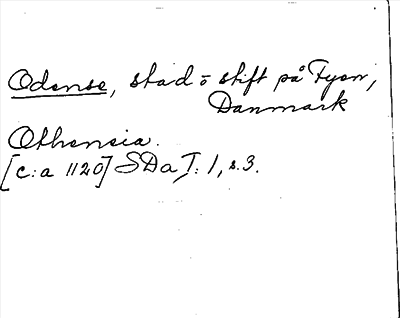 Odense, stad o stift på Fyen,
Danmark
Othensia.
[c:a 1120] SDa I: 1, s. 3.